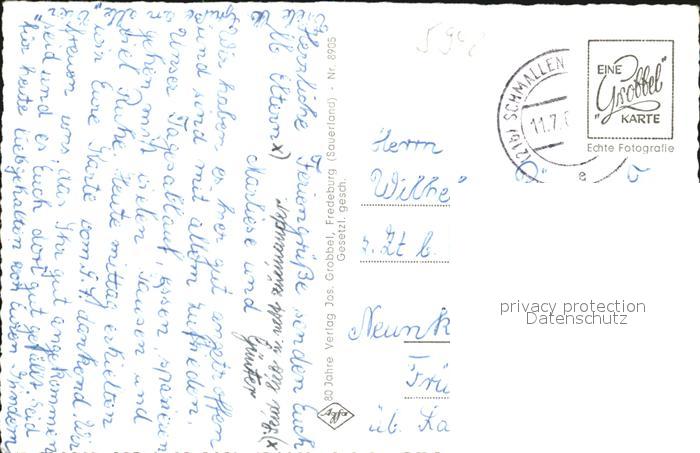 Herzliche Feriengrüße senden Euch
lb Eltern x)
Marliese und Günter
Wir haben es hier gut angetroffen
und sind mit allem zufrieden.
Unser Tagesablauf, essen, spazieren
gehen mit vielen Pausen und
viel Ruhe. Heute mittag erhielten
wir Eure Karte vom 9.7. dankend. Wir
freuen uns, das Ihr gut angekommen
seid und es Euch dort gut gefällt. Seid
für heute liebgehalten von Euren Kindern
80 Jahre Verlag Jos. Grobbel, Fredeburg (Sauerland) - Nr. 8905
Gesetzl. gesch.
594
(21b) SCHMALLEN
11.7.6
e
EINE
"Grobbel"
KARTE
Echte Fotografie
Herrn
Wilhe
z. Zt b.
Neunk
Frü
üb. Ka
privacy protection
Datenschutz